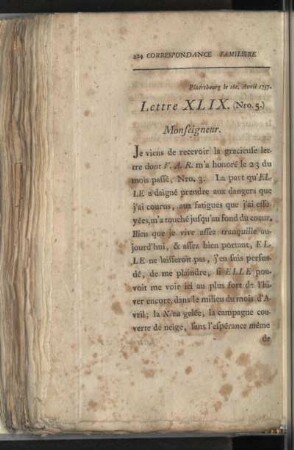 224 CORRESPONDANCE FAMILIERE
Pétersbourg le Avril 1737.
Lettre XLIX. (Nro. 5.)
Monseigneur.
Je viens de recevoir la gracieuse let-
tre dont V. A. R. m'a honoré le 23 du
mois passé, Nro. 3. La part qu'EL-
LE a daigné prendre aux dangers que
j'ai courus, aux fatigues que j'ai essu-
yées, m'a touché jusqu'au fond du coeur.
Bien que je vive assez tranquille au-
jourd'hui, & assez bien portant, EL-
LE ne laisseroit pas, j'en suis persua-
dé, de me plaindre, si ELLE pou-
voit me voir ici au plus fort de l'hi-
ver encore, dans le milieu du mois d'A-
vril; la Néva gelée, la campagne cou-
verte de neige, sans l'espérance même
de